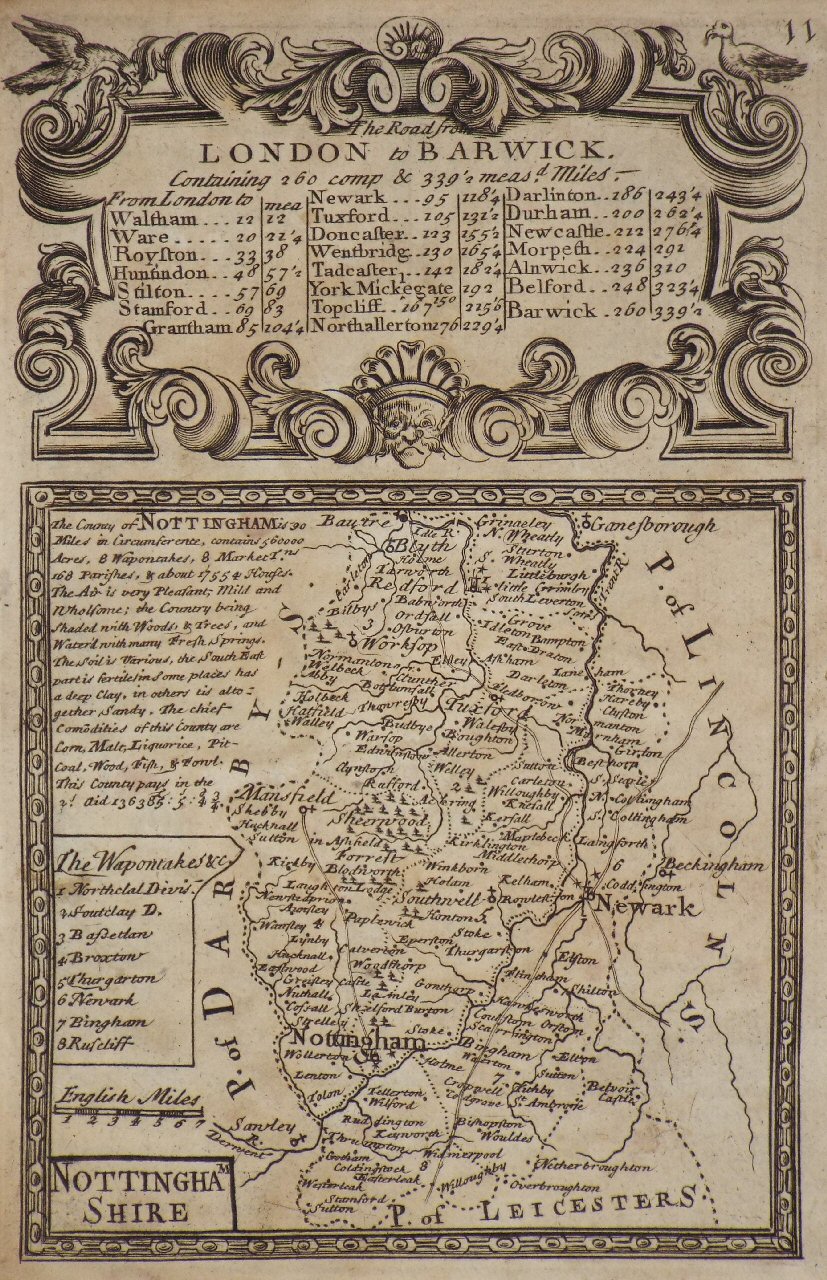 11
The Road from
LONDON to BARWICK.
Containing 260 comp & 339½ meas.d Miles
From London to mea
Waltham 12 12
Ware 20 21¼
Royston 33 38
48 57½
Stilton 57 69
Stamford 69 83
Grantham 85 104¼
Newark 95 118¼
Tuxford 105 131½
Doncaster 123 155½
Wentbridg 130 165¼
Tadcaster 142 182¼
York Mickegate 150 192
Topcliff 167
Northallerton 176 229¼
Darlinton 186 243¼
Durham 200 262¼
Newcastle 212 276¼
Morpeth 224 291
Alnwick 236 310
Belford 248 323¼
Barwick 260 339½
The County of NOTTINGHAM is 90
Miles in Circumference, contains 560000
Acres, 8 Wapontakes, 8 Market T.ns
168 Parishes, & about 17554 Houses.
The Air is very Pleasant; Mild and
Wholsome; the Country being
Shaded with Woods & Trees, and
Water'd with many Fresh Springs.
The Soil is Various, the South East
part is fertile in some places has
a deep Clay, in others tis alto=
gether Sandy. The chief
Comodities of this County are
Corn, Malt, Liquorice, Pit-
Coal, Wood, Fish, & Fowl.
This County pays in the
2s Aid 13638
The Wapontakes &c
1 Northclal Divis.
2 Soutclay D.
3 Bassetlaw
4 Broxton
5 Thurgarton
6 Newark
7 Bingham
8 Ruscliff
English Miles
1 2 3 4 5 6 7
NOTTINGHAM
SHIRE
P. of DARBI-S
P. of LINCOLNS.
P. of LEICESTERS.
Bautre
Idle R.
Grineley
Ganesborough
Blyth
N. Wheatly
Sturton
S. Wheatly
Littleburgh
South Leverton
Trent R.
Redford
Babworth
Ordsall
Osburton
Bilby
Worksop
Grove
Bampton
East Draton
Askham
Darlton
Laneham
Normanton
Welbeck
Abby
Elksley
Clumber
Bothumsall
Holbeck
Hatfield
Walley
Thouresby
Tuxford
Thorney
Hareby
Clifton
Girton
Budbye
Walesby
Boughton
Warsop
Allerton
Edwinstow
Besthorp
S. Searle
Clynston
Rufford
Welley
Sutton
Carleton
Willoughby
Knesall
N. Collingham
S. Collingham
Mansfield
Skegby
Hucknall
Sutton in Ashfield
Sherwood
Forrest
Kersall
Kirklington
Maplebeck
Middlethorp
Langforth
Beckingham
Coddington
Kirkby
Blidworth
Winkborn
Holam
Kelham
Newark
Southwell
Annsley
Papplewick
Rowlston
Stoke
Lynby
Calverton
Eperston
Thurgarton
Elston
Hucknall
Woodthorp
Eastwood
Greisley Castle
Lainley
Gonthorp
Flintham
Shilton
Nuthall
Cossall
Shelford
Burton
Strelley
Screveton
Orston
Nottingham
Stoke
Bingham
Elton
Wollerton
Holme
Sutton
Belvoir
Castle
Lenton
Cropwell
Tithby
St. Ambrose
Wilford
Bishopston
Wouldes
Sawley
R.
Derwent
Ruddington
Keyworth
Thrumpton
Gotham
Widmerpool
Westerleak
Easterleak
Stanford
Sutton
Willoughby
Netherbroughton
Overbroughton